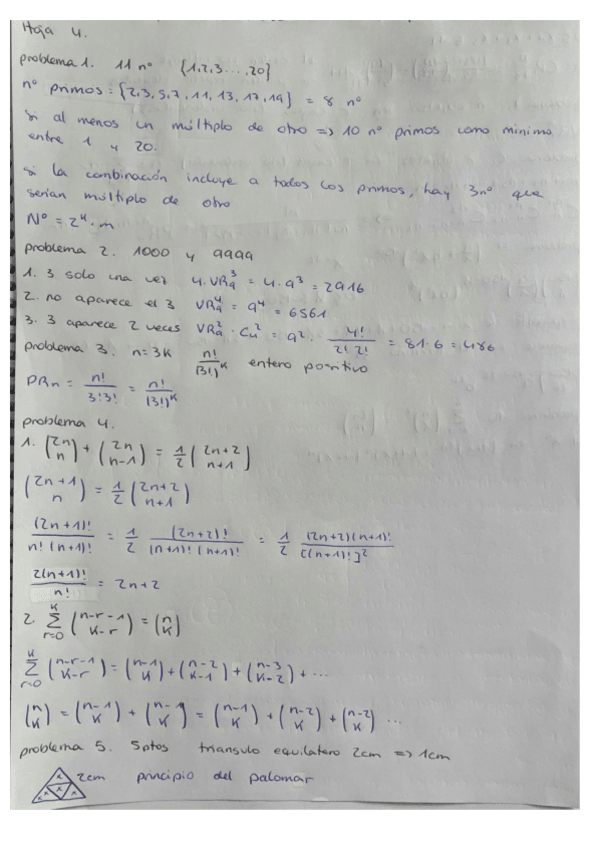 Hoja 4.
problema 1. 11 nº {1,2,3...,20}
nº primos: {2,3,5,7,11,13,17,19} = 8 nº
si al menos un múltiplo de otro => 10 nº primos como mínimo
entre 1 y 20.
si la combinación incluye a todos los primos, hay 3nº que
serían múltiplo de otro
Nº = 2ᵘ · m
problema 2. 1000 y 9999
1. 3 solo una vez 4·VR₉³ = 4·9³ = 2916
2. no aparece el 3 VR₉⁴ = 9⁴ = 6561
3. 3 aparece 2 veces VR₉² · C₄² = 9² · 4!/(2! 2!) = 81·6 = 486
problema 3. n=3K n!/(3!)^K entero positivo
PRn = n!/(3!3!) = n!/(3!)^K
problema 4.
1. (2n n) + (2n n-1) = 1/2 (2n+2 n+1)
(2n+1 n) = 1/2 (2n+2 n+1)
(2n+1)!/(n! (n+1)!) = 1/2 (2n+2)!/((n+1)! (n+1)!) = 1/2 (2n+2)(n+1)!/[(n+1)!]²
2(n+1)!/n! = 2n+2
2 Σ_{r=0}^{K} (n-r-1 K-r) = (n K)
Σ_{r=0}^{K} (n-r-1 K-r) = (n-1 K) + (n-2 K-1) + (n-3 K-2) + ...
(n K) = (n-1 K) + (n-1 K) = (n-1 K) + (n-2 K) + (n-2 K) ...
problema 5. 5 ptos triangulo equilatero 2cm => 1cm
2cm principio del palomar